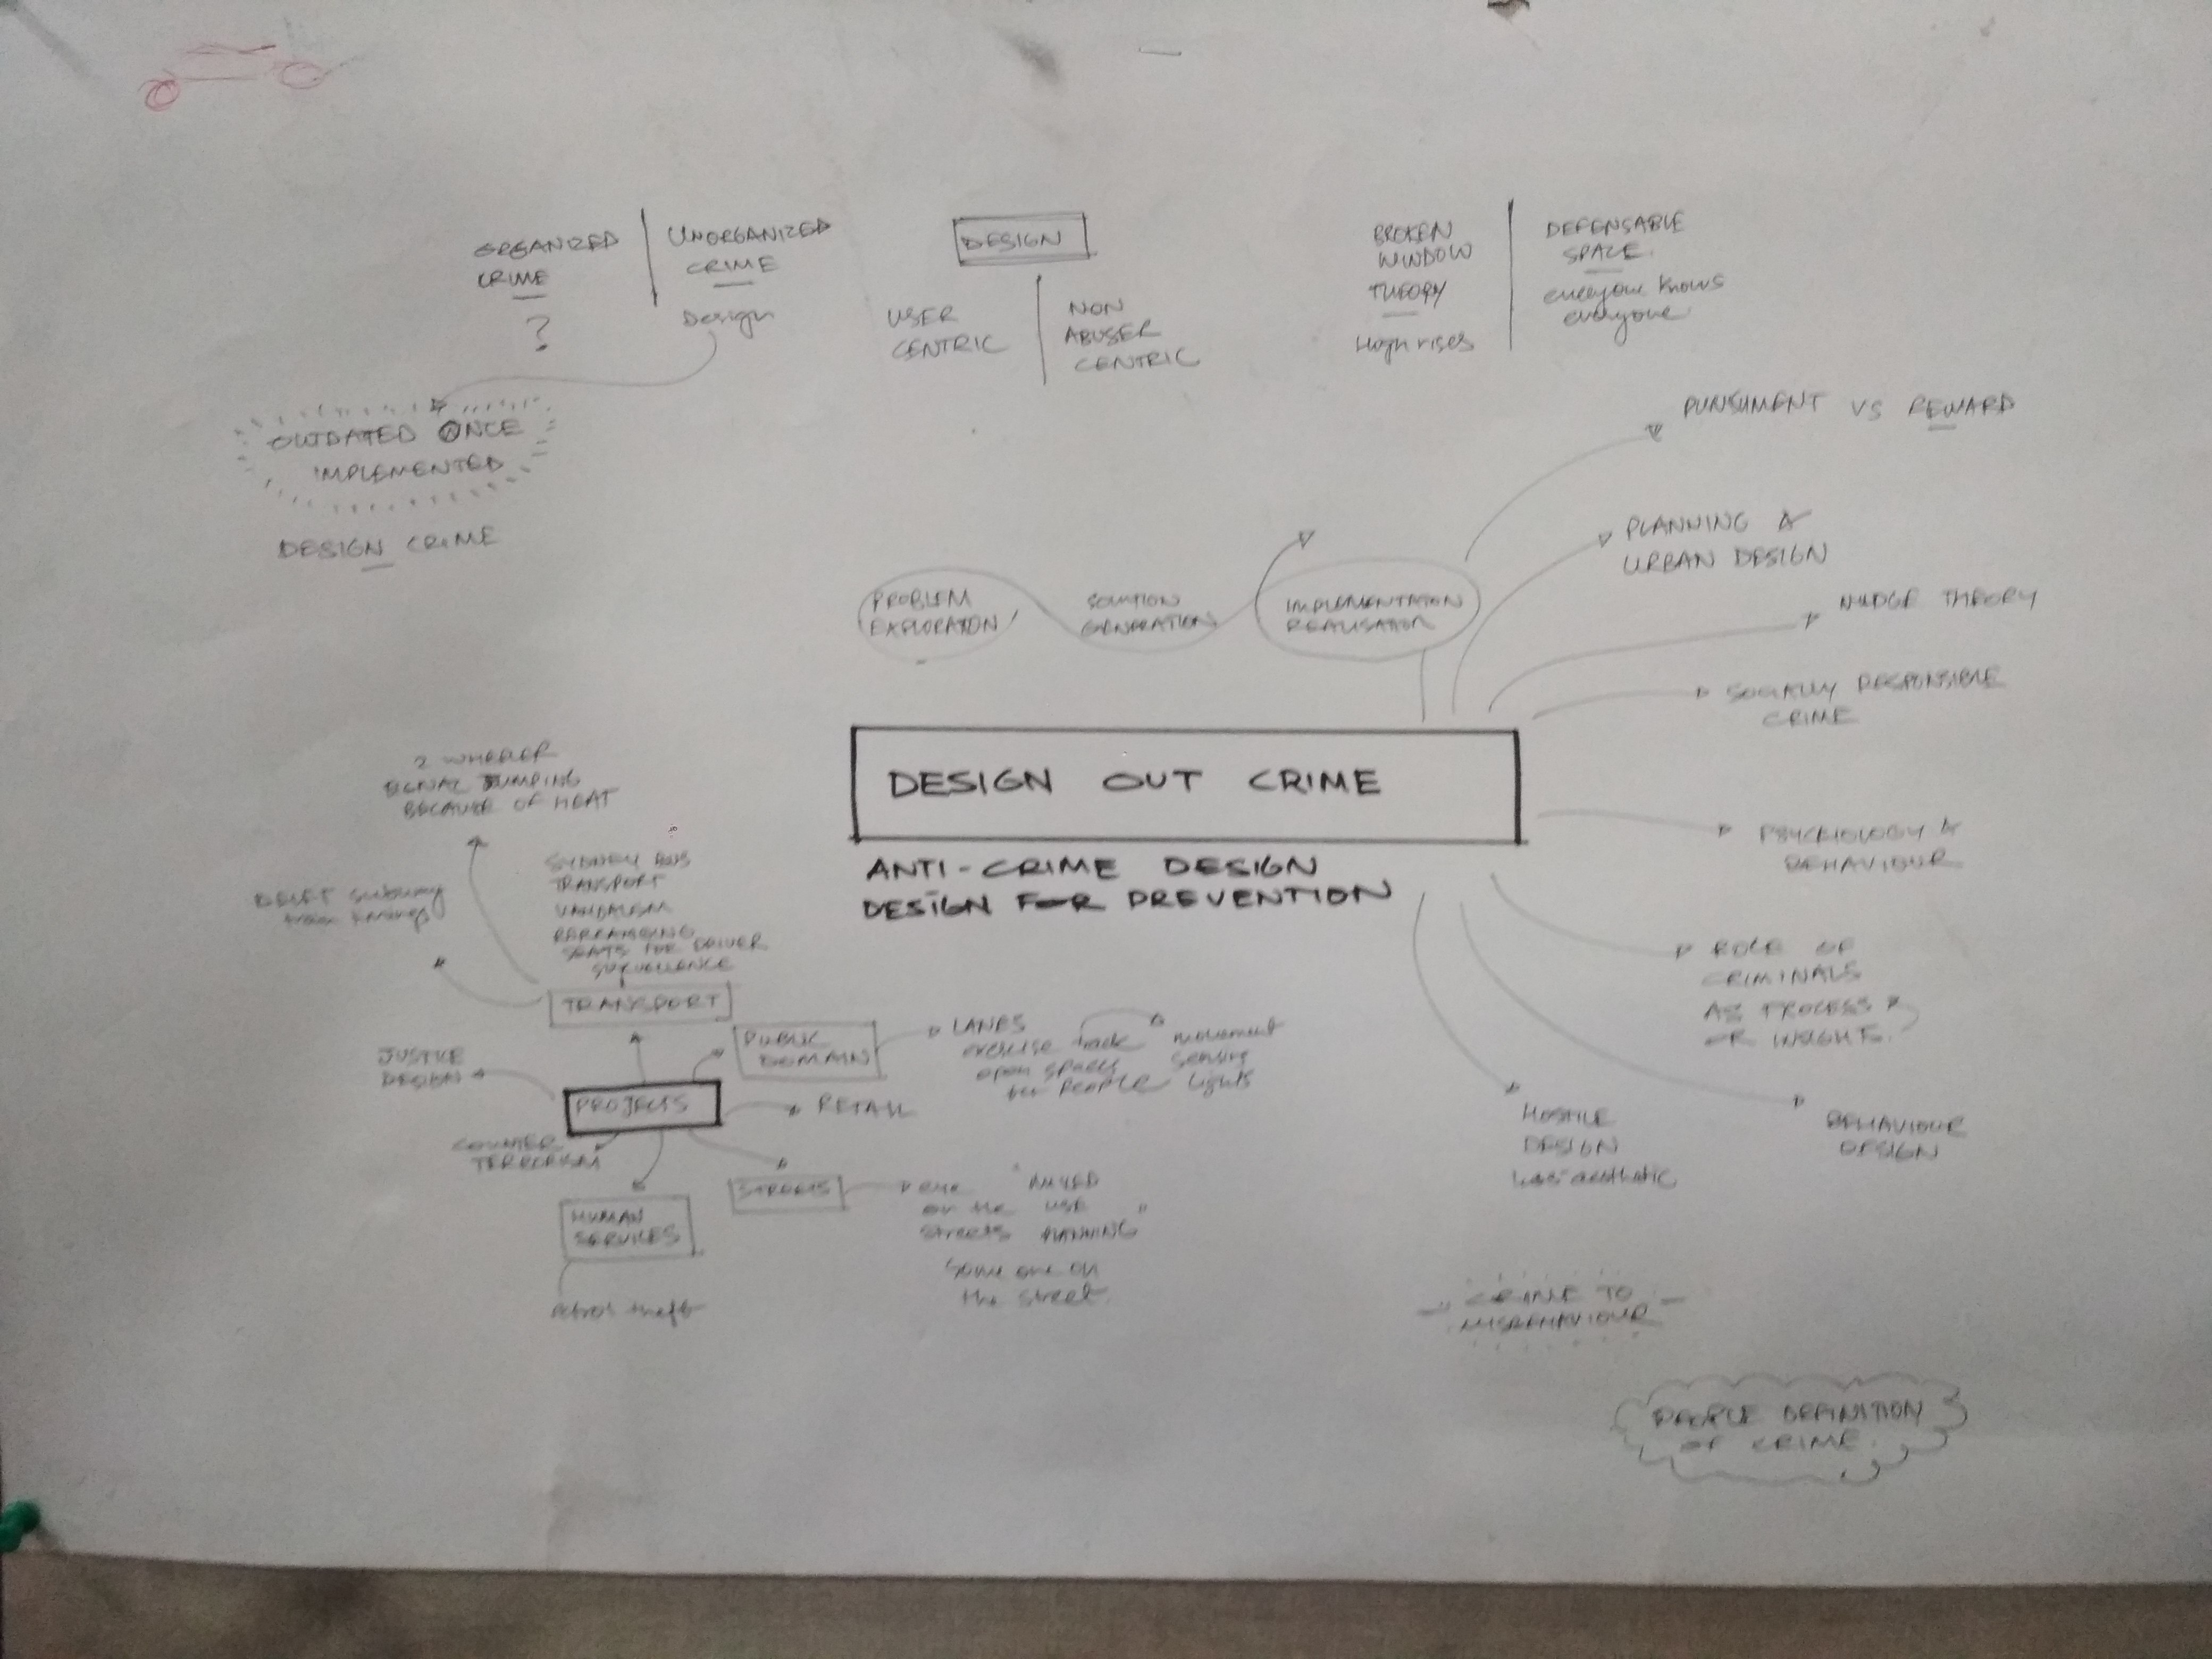 ORGANIZED
CRIME
?
UNORGANIZED
CRIME
Design
OUTDATED ONCE
IMPLEMENTED
DESIGN CRIME
DESIGN
USER
CENTRIC
NON
ABUSER
CENTRIC
BROKEN
WINDOW
THEORY
High rises
DEFENSABLE
SPACE
everyone knows
everyone
PUNISHMENT VS REWARD
PLANNING &
URBAN DESIGN
NUDGE THEORY
SOCIALLY RESPONSIBLE
CRIME
PROBLEM
EXPLORATION
SOLUTION
GENERATION
IMPLEMENTATION
REALISATION
DESIGN OUT CRIME
ANTI-CRIME DESIGN
DESIGN FOR PREVENTION
PSYCHOLOGY &
BEHAVIOUR
ROLE OF
CRIMINALS
AS PROCESS
OR INSIGHTS.
BEHAVIOUR
DESIGN
HOSTILE
DESIGN
less aesthetic
2 WHEELER
SIGNAL JUMPING
BECAUSE OF HEAT
SYDNEY BUS
TRANSPORT
VANDALISM
REARRANGING
SEATS FOR DRIVER
SURVEILLANCE
DELFT subway
train timings
TRANSPORT
PUBLIC
DOMAIN
LANES
exercise track
open spaces
for PEOPLE
movement
sensing
lights
JUSTICE
DESIGN
PROJECTS
RETAIL
COUNTER
TERRORISM
HUMAN
SERVICES
Petrol theft
STREETS
eye
on the
streets
MIXED
USE
PLANNING
Some one on
the street.
CRIME TO
MISBEHAVIOUR
PEOPLE DEFINITION
OF CRIME.